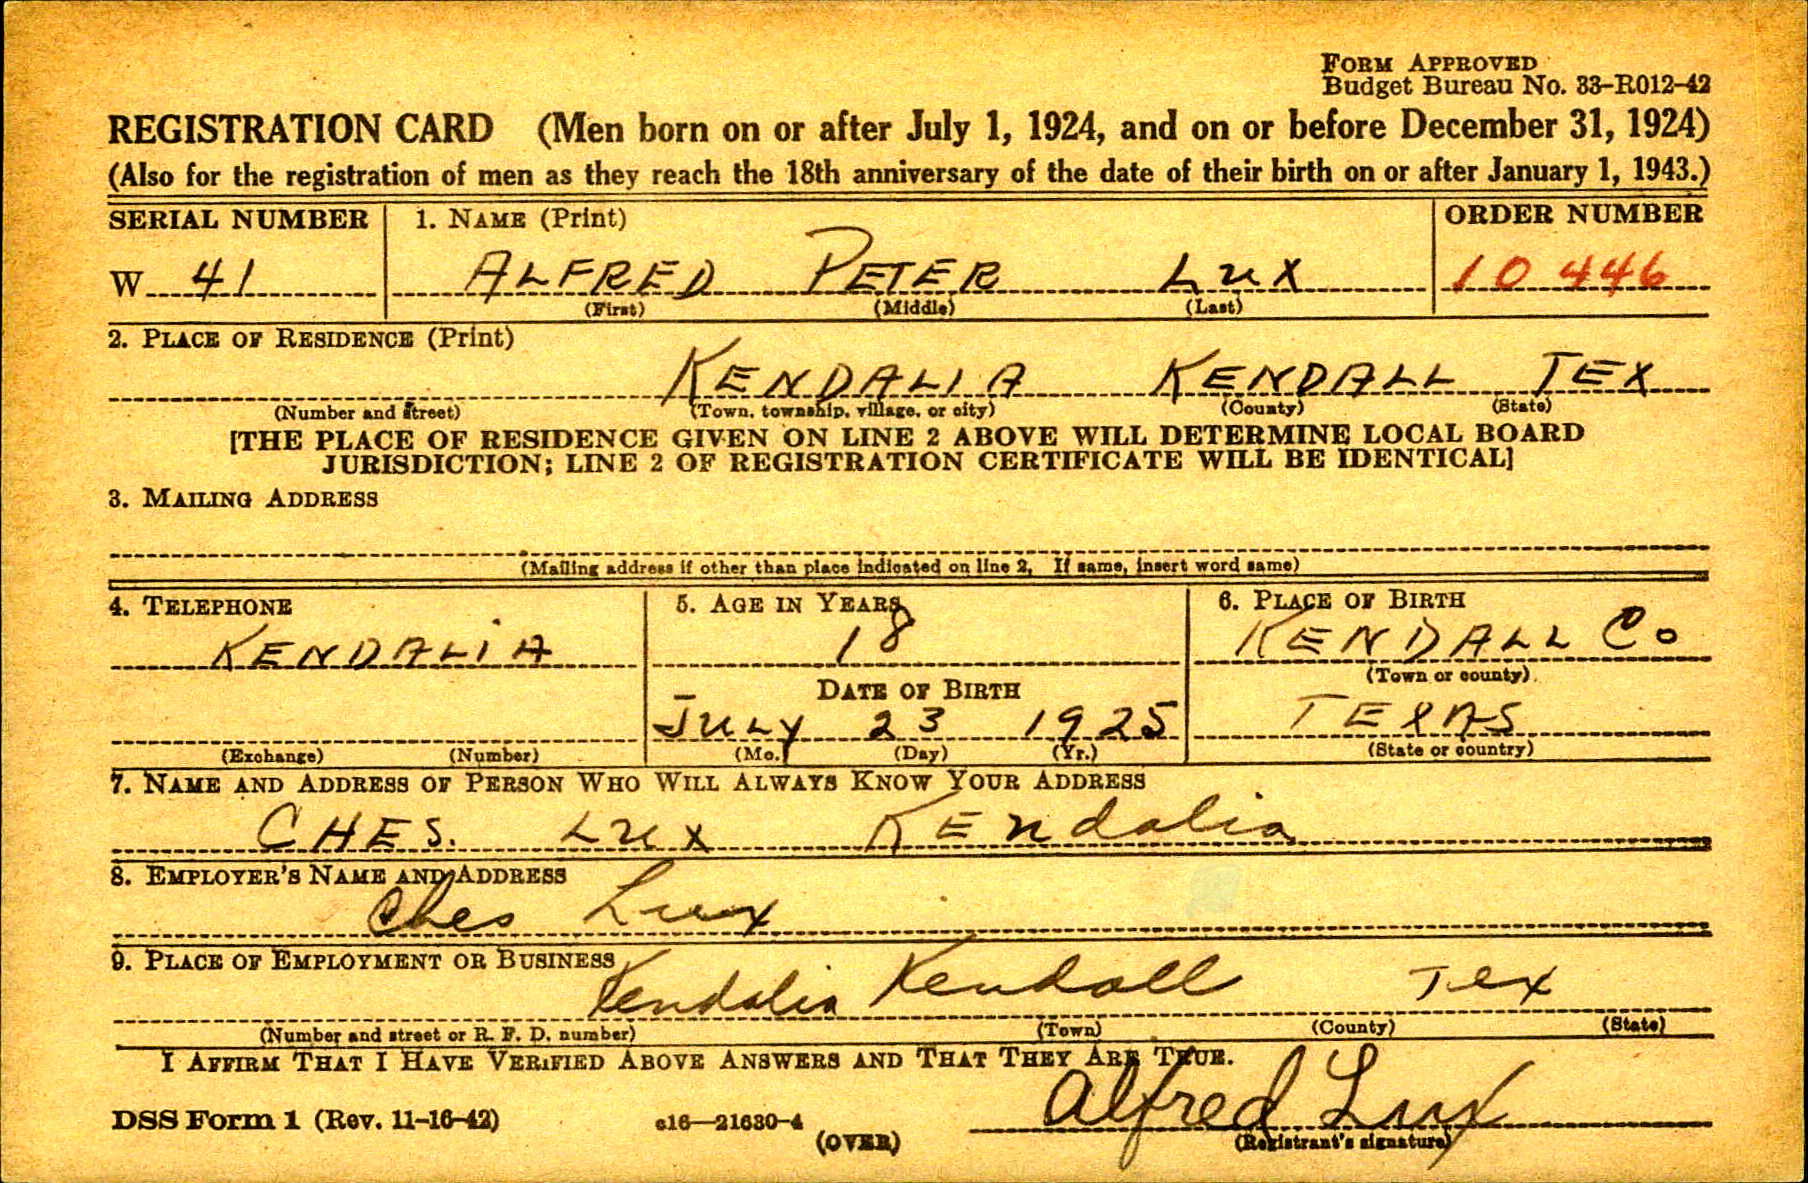 FORM APPROVED
Budget Bureau No. 33-R012-42
REGISTRATION CARD (Men born on or after July 1, 1924, and on or before December 31, 1924)
(Also for the registration of men as they reach the 18th anniversary of the date of their birth on or after January 1, 1943.)
SERIAL NUMBER 1. NAME (Print) ORDER NUMBER
W 41 ALFRED PETER LUX 10 446
(First) (Middle) (Last)
2. PLACE OF RESIDENCE (Print)
KENDALIA KENDALL TEX
(Number and street) (Town, township, village, or city) (County) (State)
[THE PLACE OF RESIDENCE GIVEN ON LINE 2 ABOVE WILL DETERMINE LOCAL BOARD
JURISDICTION; LINE 2 OF REGISTRATION CERTIFICATE WILL BE IDENTICAL]
3. MAILING ADDRESS
(Mailing address if other than place indicated on line 2. If same, insert word same)
4. TELEPHONE 5. AGE IN YEARS 6. PLACE OF BIRTH
KENDALIA 18 KENDALL Co
(Town or county)
DATE OF BIRTH
JULY 23 1925 TEXAS
(Exchange) (Number) (Mo.) (Day) (Yr.) (State or country)
7. NAME AND ADDRESS OF PERSON WHO WILL ALWAYS KNOW YOUR ADDRESS
CHES. LUX KENdalia
8. EMPLOYER'S NAME AND ADDRESS
Ches Lux
9. PLACE OF EMPLOYMENT OR BUSINESS
Kendalia Kendall Tex
(Number and street or R. F. D. number) (Town) (County) (State)
I AFFIRM THAT I HAVE VERIFIED ABOVE ANSWERS AND THAT THEY ARE TRUE.
Alfred Lux
DSS Form 1 (Rev. 11-16-42) c16—21630-4 (OVER) (Registrant's signature)